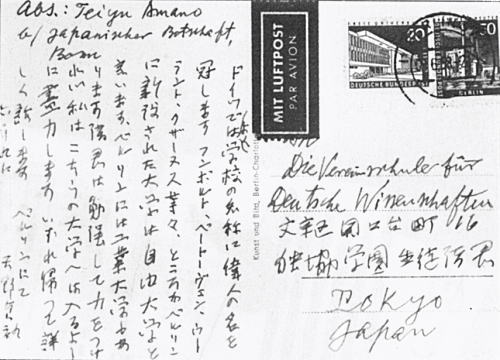 Abs.: Teiyu Amano
b/ Japanischer Botschaft,
Bonn
ドイツでは学校の名称に偉人の名を
冠します フンボルト、ベートーヴェン、ウー
ラント、クザーヌス等々、ところがベルリン
に新設された大学は自由大学と
言います、ベルリンには工業大学もあ
ります 諸君は勉強して力をつけ
私はこちらの大学へ入るよう
に盡力します いずれ帰って詳
しく話します ベルリンにて
天野貞祐
MIT LUFTPOST
PAR AVION
20
DEUTSCHE BUNDESPOST
50
BERLIN
Kunst und Bild, Berlin-Charlotte
An
Die Vereinschuler für
Deutsche Wissenschaften
文京区関口台町 166
独協学園 生徒諸君
Tokyo
Japan